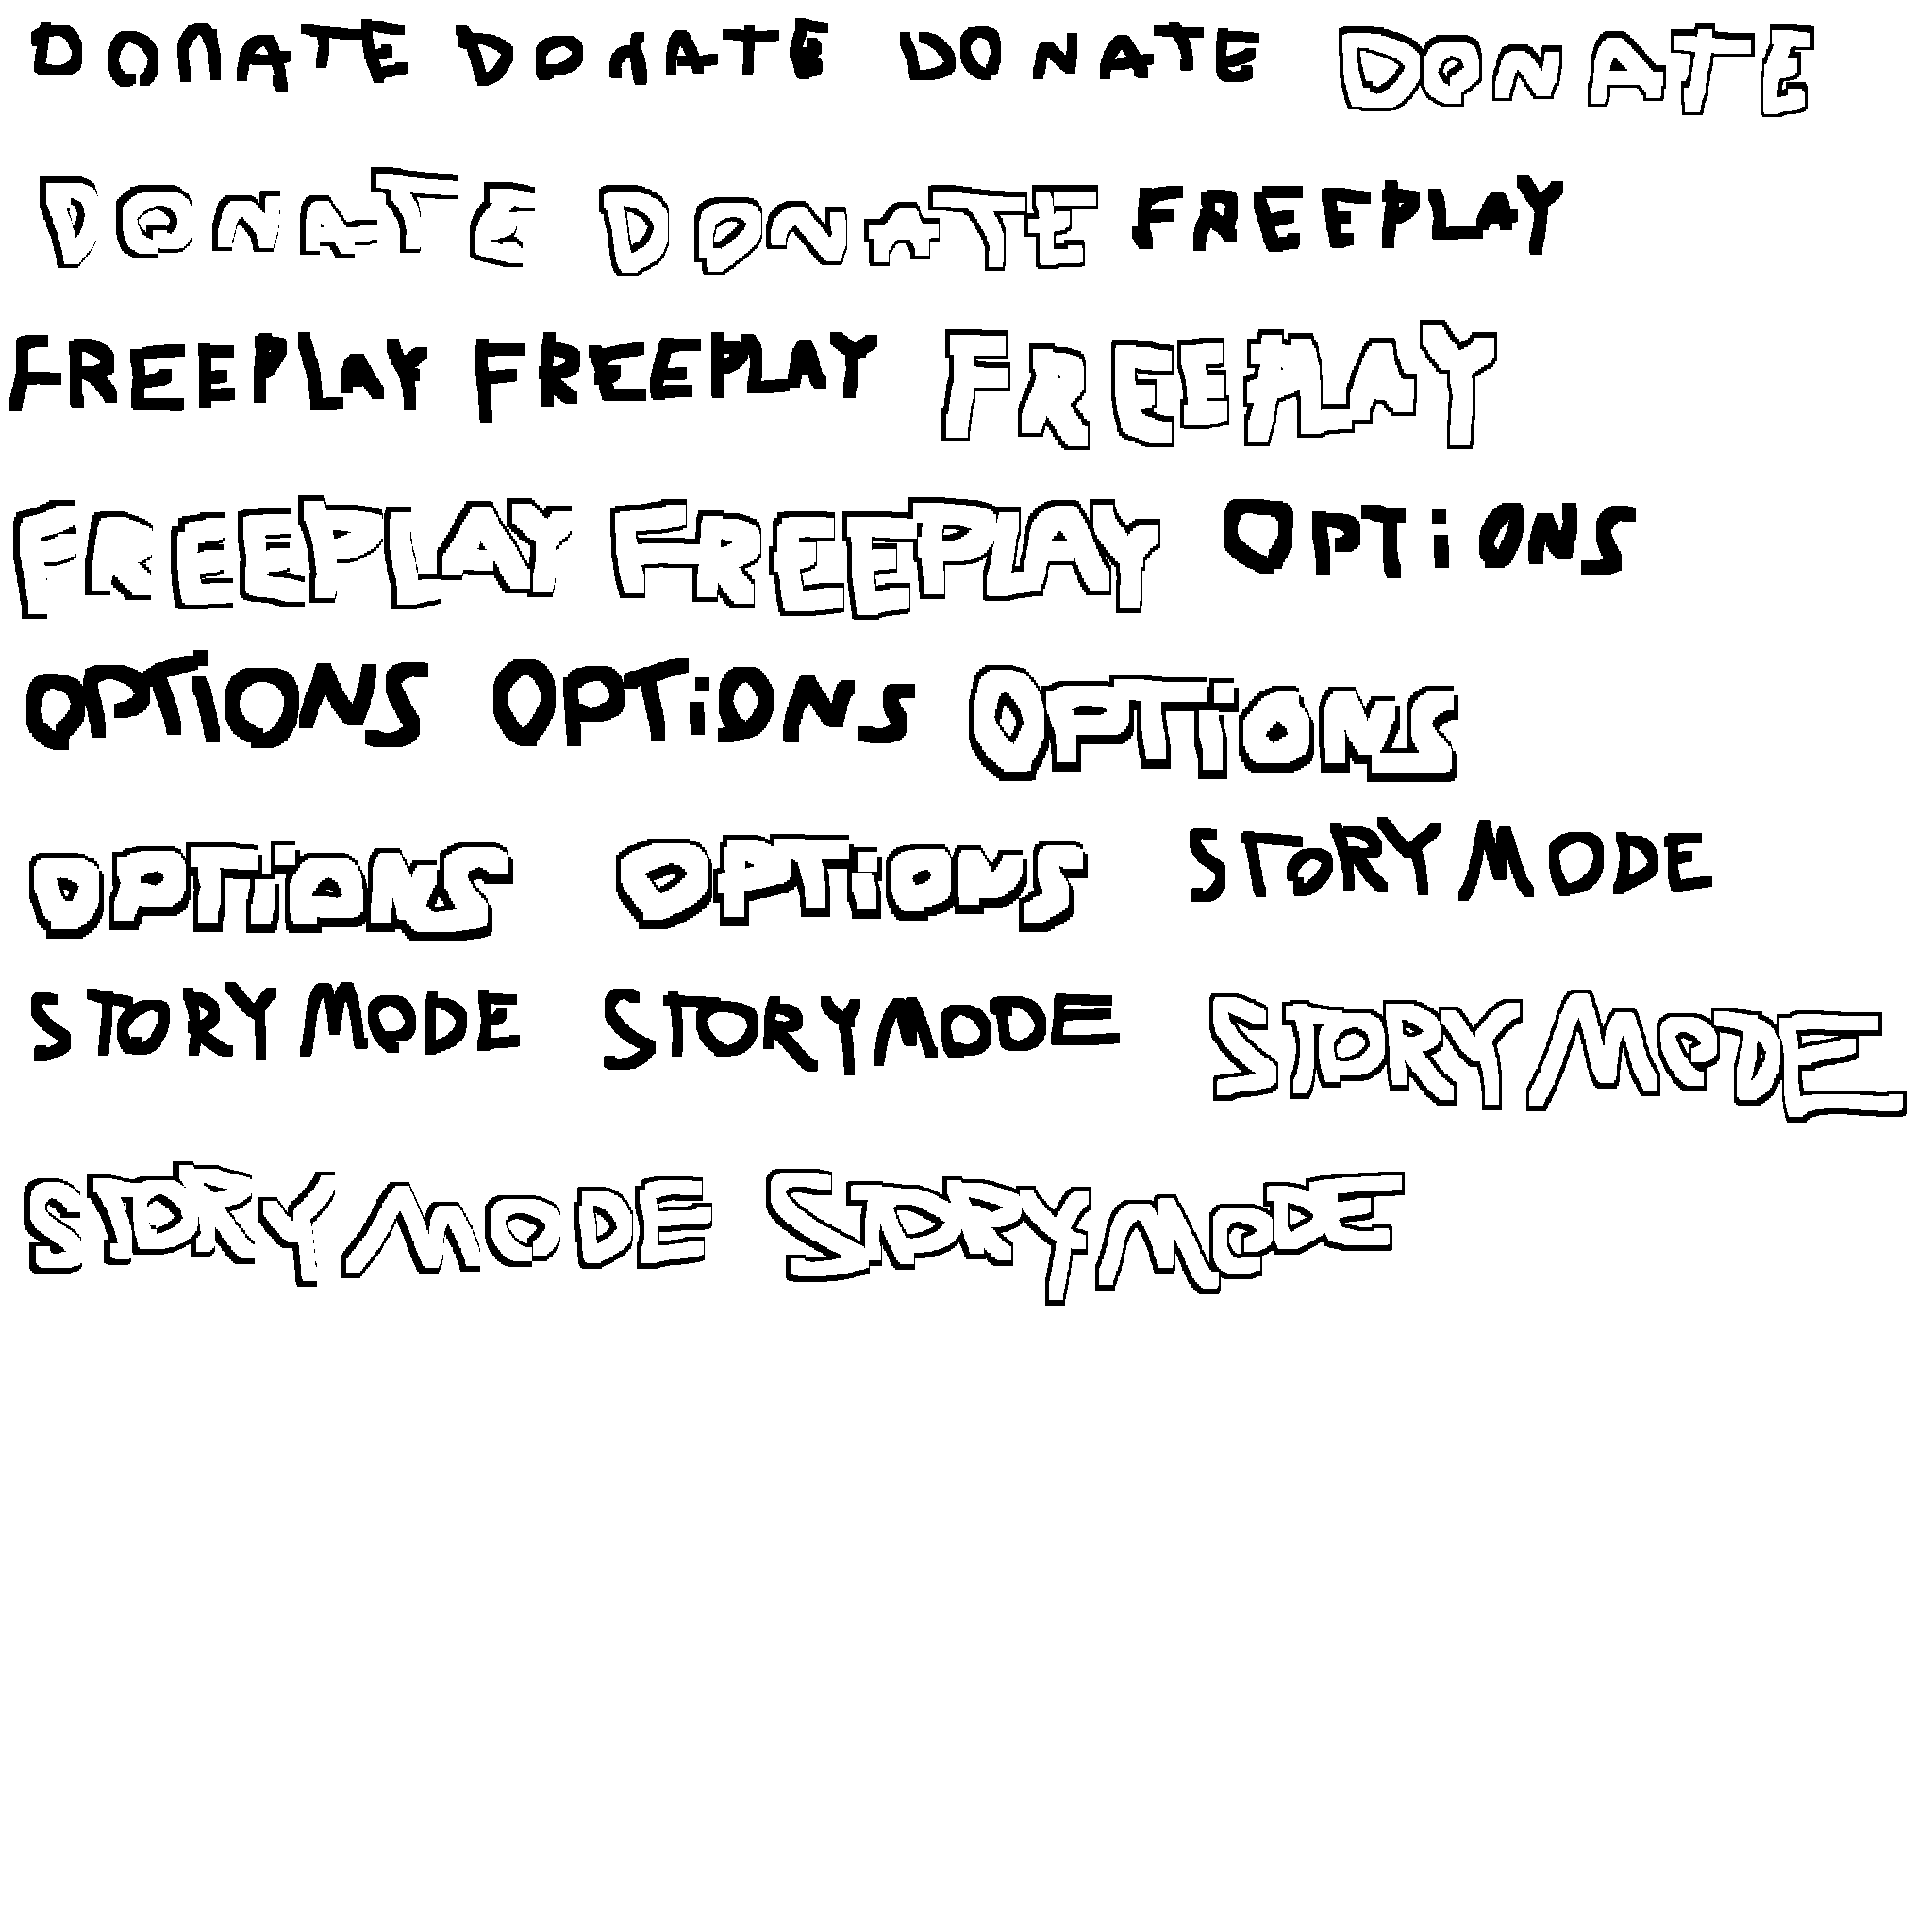 DONATE DONATE DONATE DONATE
DONATE DONATE FREEPLAY
FREEPLAY FREEPLAY FREEPLAY
FREEPLAY FREEPLAY OPTiONS
OPTIONS OPTiONS OPTiONS
OPTiONS OPTiONS STORY MODE
STORY MODE STORY MODE STORY MODE
STORY MODE STORY MODE